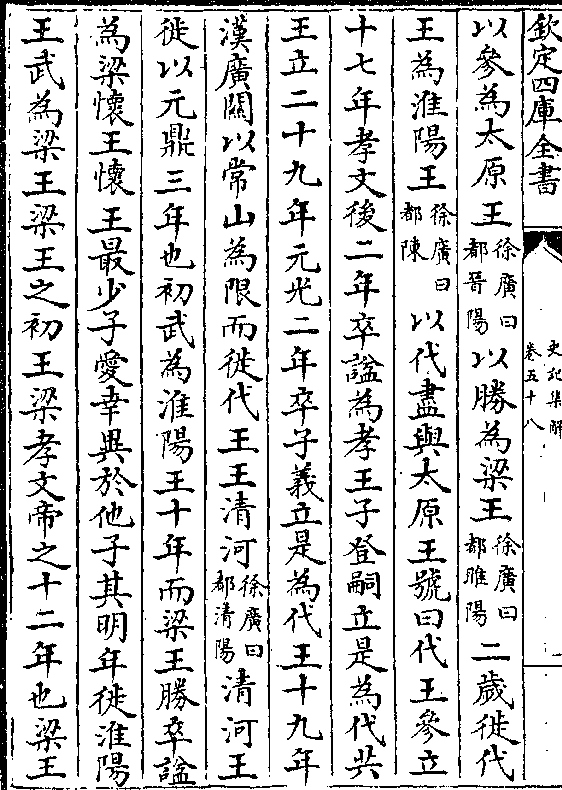 欽定四庫全書
史記集解
卷五十八
一
以參為太原王徐廣曰都晉陽以勝為梁王徐廣曰都睢陽二歲徙代
王為淮陽王徐廣曰都陳以代盡與太原王號曰代王參立
十七年孝文後二年卒諡為孝王子登嗣立是為代共
王立二十九年元光二年卒子義立是為代王十九年
漢廣關以常山為限而徙代王王清河徐廣曰都清陽清河王
徙以元鼎三年也初武為淮陽王十年而梁王勝卒諡
為梁懷王懷王最少子愛幸異於他子其明年徙淮陽
王武為梁王梁王之初王梁孝文帝之十二年也梁王